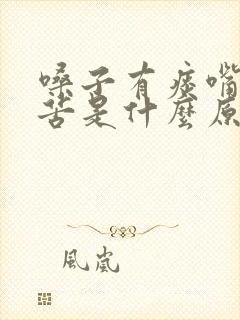 嗓子有痰嘴
苦是什麼原
風嵐